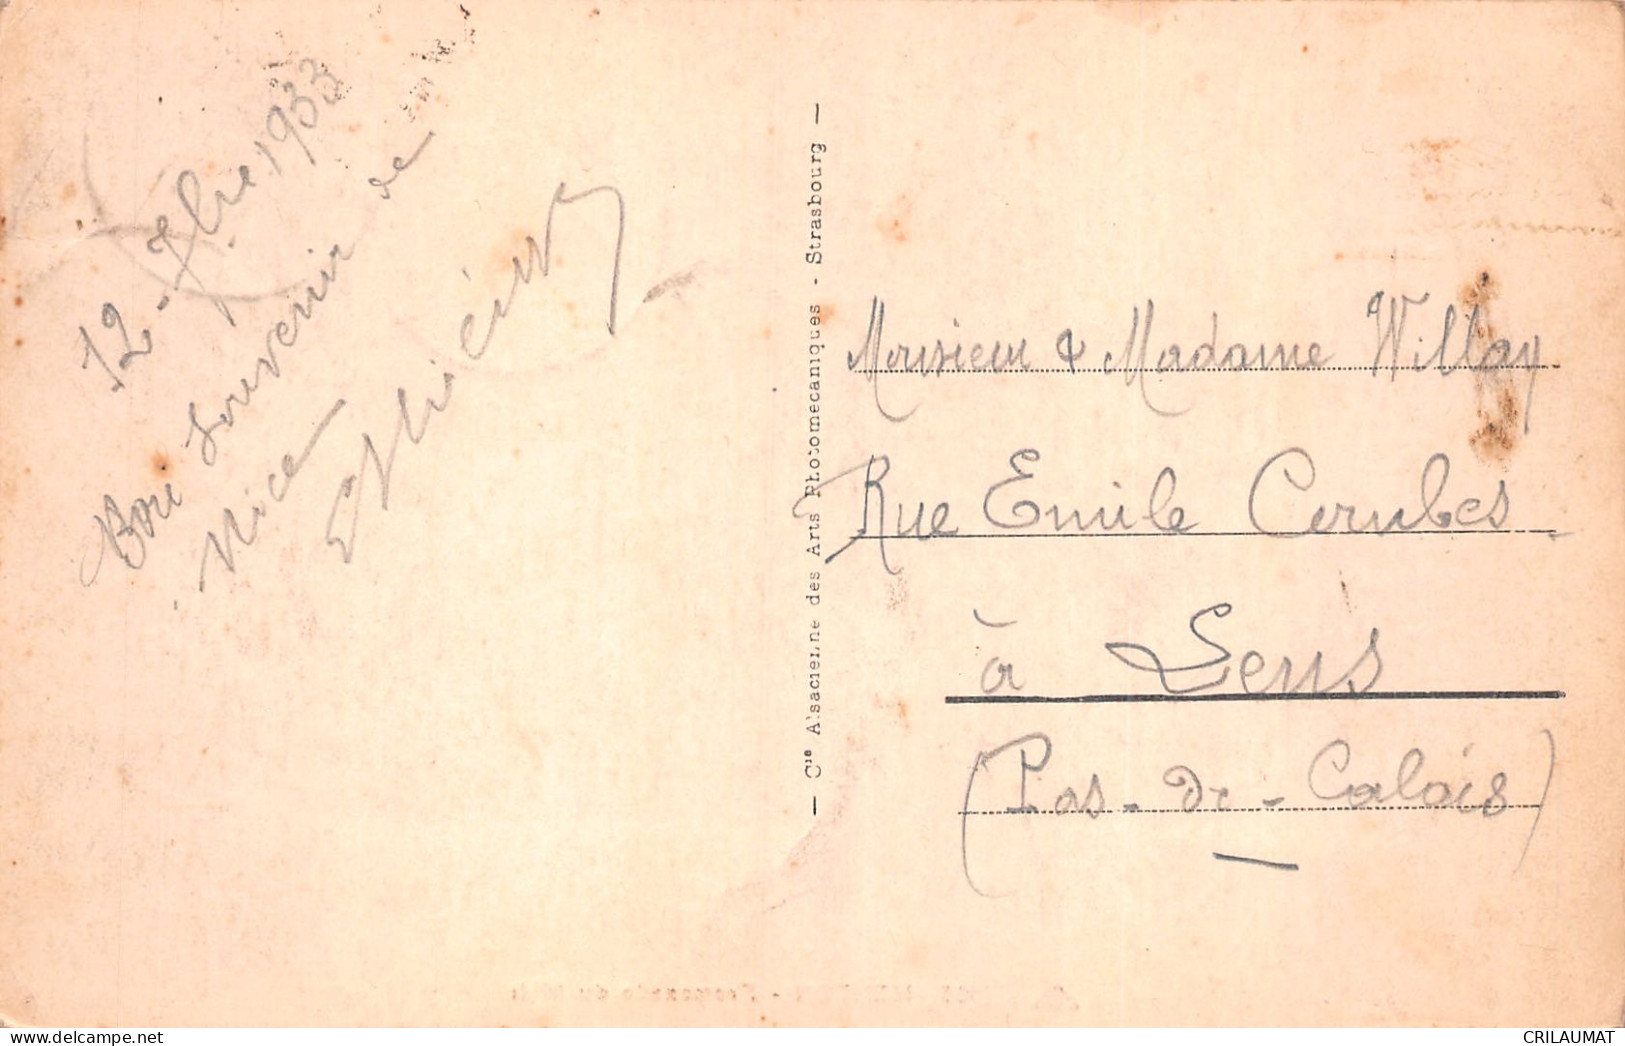 12 - 7bre 1933
Bon Souvenir de
Nice
— Cie Alsacienne des Arts Photomecaniques - Strasbourg —
Monsieur & Madame Willay
Rue Emile Combes
à Lens
(Pas-de-Calais)
CRILAUMAT